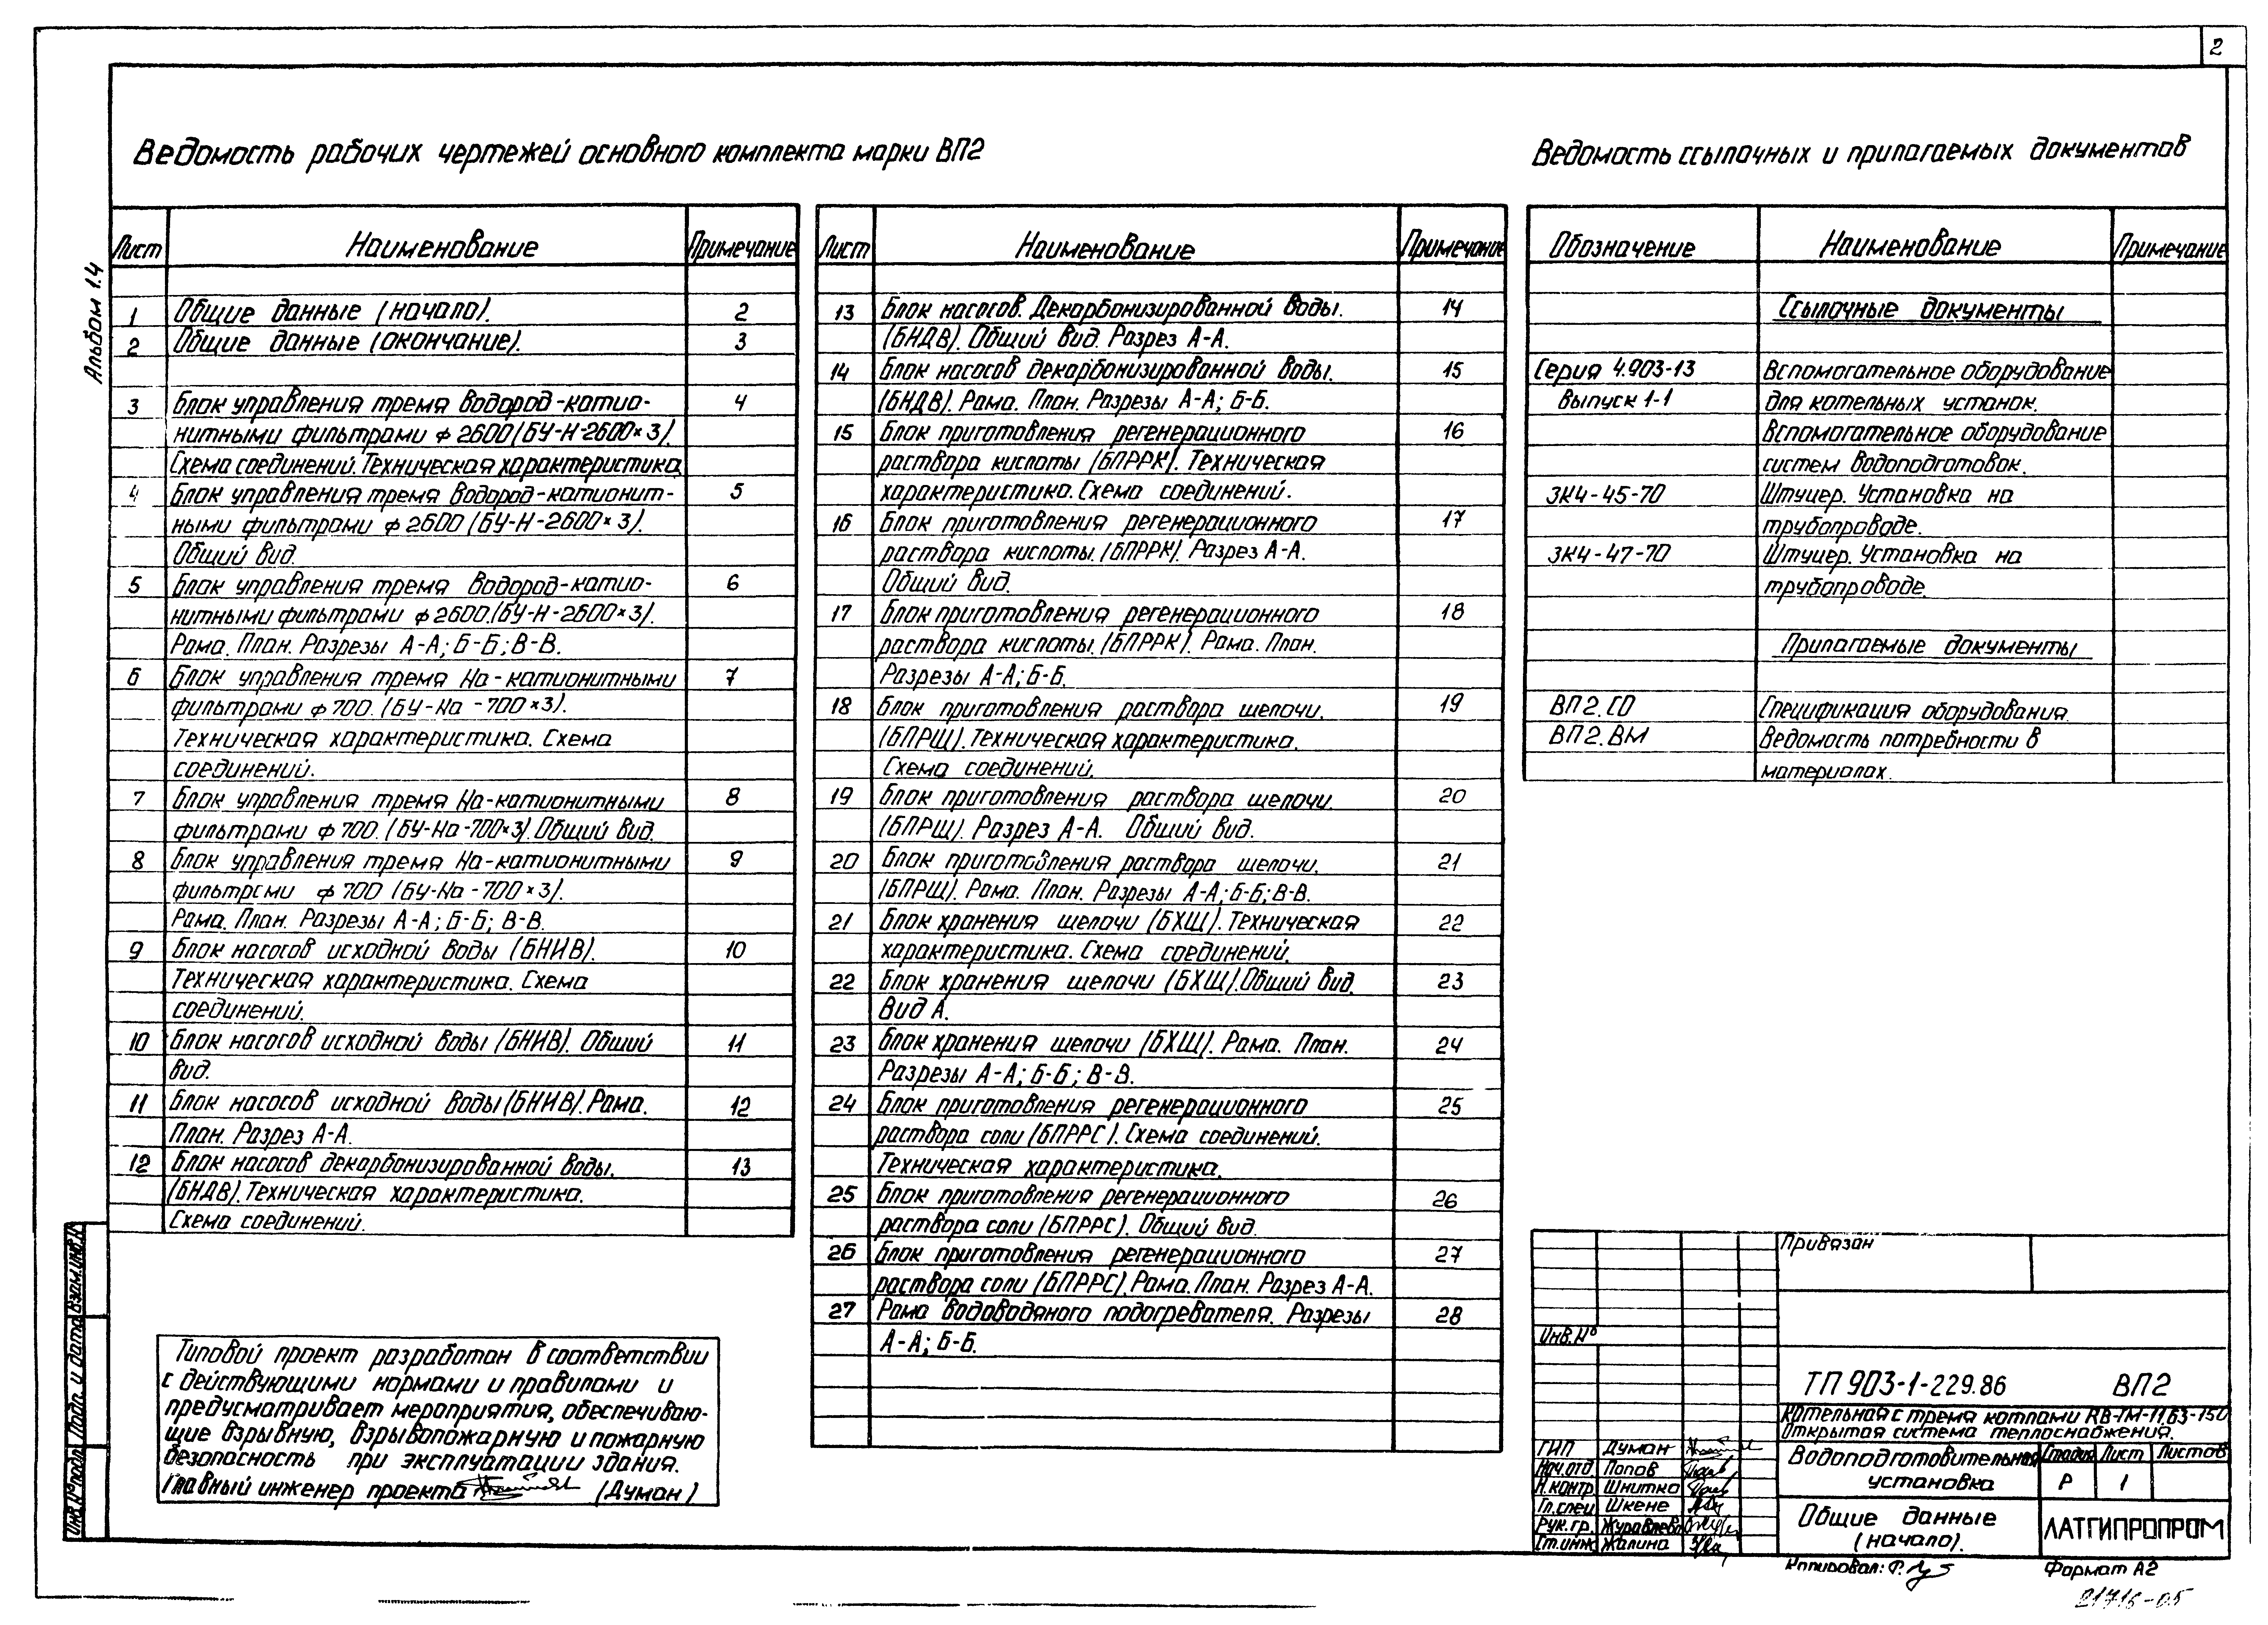 2
Альбом 1.4
Ведомость рабочих чертежей основного комплекта марки ВП2
Лист Наименование Примечание
1 Общие данные (начало). 2
2 Общие данные (окончание). 3
3 Блок управления тремя водород-катио- 4
нитными фильтрами ф 2600 (БУ-Н-2600×3).
Схема соединений. Техническая характеристика
4 Блок управления тремя водород-катионит- 5
ными фильтрами ф 2600 (БУ-Н-2600×3).
Общий вид.
5 Блок управления тремя водород-катио- 6
нитными фильтрами ф 2600.(БУ-Н-2600×3).
Рама. План. Разрезы А-А; Б-Б; В-В.
6 Блок управления тремя На-катионитными 7
фильтрами ф 700. (БУ-На-700×3).
Техническая характеристика. Схема
соединений.
7 Блок управления тремя На-катионитными 8
фильтрами ф 700. (БУ-На-700×3). Общий вид.
8 Блок управления тремя На-катионитными 9
фильтрами ф 700 (БУ-На-700×3).
Рама. План. Разрезы А-А; Б-Б; В-В.
9 Блок насосов исходной воды (БНИВ). 10
Техническая характеристика. Схема
соединений.
10 Блок насосов исходной воды (БНИВ). Общий 11
вид.
11 Блок насосов исходной воды (БНИВ). Рама. 12
План. Разрез А-А.
12 Блок насосов декарбонизированной воды. 13
(БНДВ). Техническая характеристика.
Схема соединений.
Лист Наименование Примечание
13 Блок насосов. Декарбонизированной воды. 14
(БНДВ). Общий вид. Разрез А-А.
14 Блок насосов декарбонизированной воды. 15
(БНДВ). Рама. План. Разрезы А-А; Б-Б.
15 Блок приготовления регенерационного 16
раствора кислоты (БПРРК). Техническая
характеристика. Схема соединений.
16 Блок приготовления регенерационного 17
раствора кислоты. (БПРРК). Разрез А-А.
Общий вид.
17 Блок приготовления регенерационного 18
раствора кислоты. (БПРРК). Рама. План.
Разрезы А-А; Б-Б.
18 Блок приготовления раствора щелочи. 19
(БПРЩ). Техническая характеристика.
Схема соединений.
19 Блок приготовления раствора щелочи. 20
(БПРЩ). Разрез А-А. Общий вид.
20 Блок приготовления раствора щелочи. 21
(БПРЩ). Рама. План. Разрезы А-А; Б-Б; В-В.
21 Блок хранения щелочи (БХЩ). Техническая 22
характеристика. Схема соединений.
22 Блок хранения щелочи (БХЩ). Общий вид. 23
Вид А.
23 Блок хранения щелочи (БХЩ). Рама. План. 24
Разрезы А-А; Б-Б; В-В.
24 Блок приготовления регенерационного 25
раствора соли (БПРРС). Схема соединений.
Техническая характеристика.
25 Блок приготовления регенерационного 26
раствора соли (БПРРС). Общий вид.
26 Блок приготовления регенерационного 27
раствора соли (БПРРС). Рама. План. Разрез А-А.
27 Рама водоводяного подогревателя. Разрезы 28
А-А; Б-Б.
Ведомость ссылочных и прилагаемых документов
Обозначение Наименование Примечание
Ссылочные документы
Серия 4.903-13 Вспомогательное оборудование
Выпуск 1-1 для котельных устанок.
Вспомогательное оборудование
систем водоподготовок.
ЗК4-45-70 Штуцер. Установка на
трубопроводе.
ЗК4-47-70 Штуцер. Установка на
трубопроводе.
Прилагаемые документы
ВП2.СО Спецификация оборудования.
ВП2.ВМ Ведомость потребности в
материалах.
Типовой проект разработан в соответствии
с действующими нормами и правилами и
предусматривает мероприятия, обеспечиваю-
щие взрывную, взрывопожарную и пожарную
безопасность при эксплуатации здания.
Главный инженер проекта (Думан)
Взам.инв.№
Подп. и дата
Инв.№подл.
Привязан
Инв.№
ТП 903-1-229.86 ВП2
Котельная с тремя котлами КВ-ТМ-11,63-150
Открытая система теплоснабжения.
ГИП Думан
Нач.отд. Попов
Н.контр Шнитко
Гл.спец Шкене
Рук.гр. Журавлева
Ст.инж Жалина
Водоподготовительная
установка
Стадия Лист Листов
Р 1
Общие данные
(начало).
ЛАТГИПРОПРОМ
Копировал:
Формат А2
21716-05